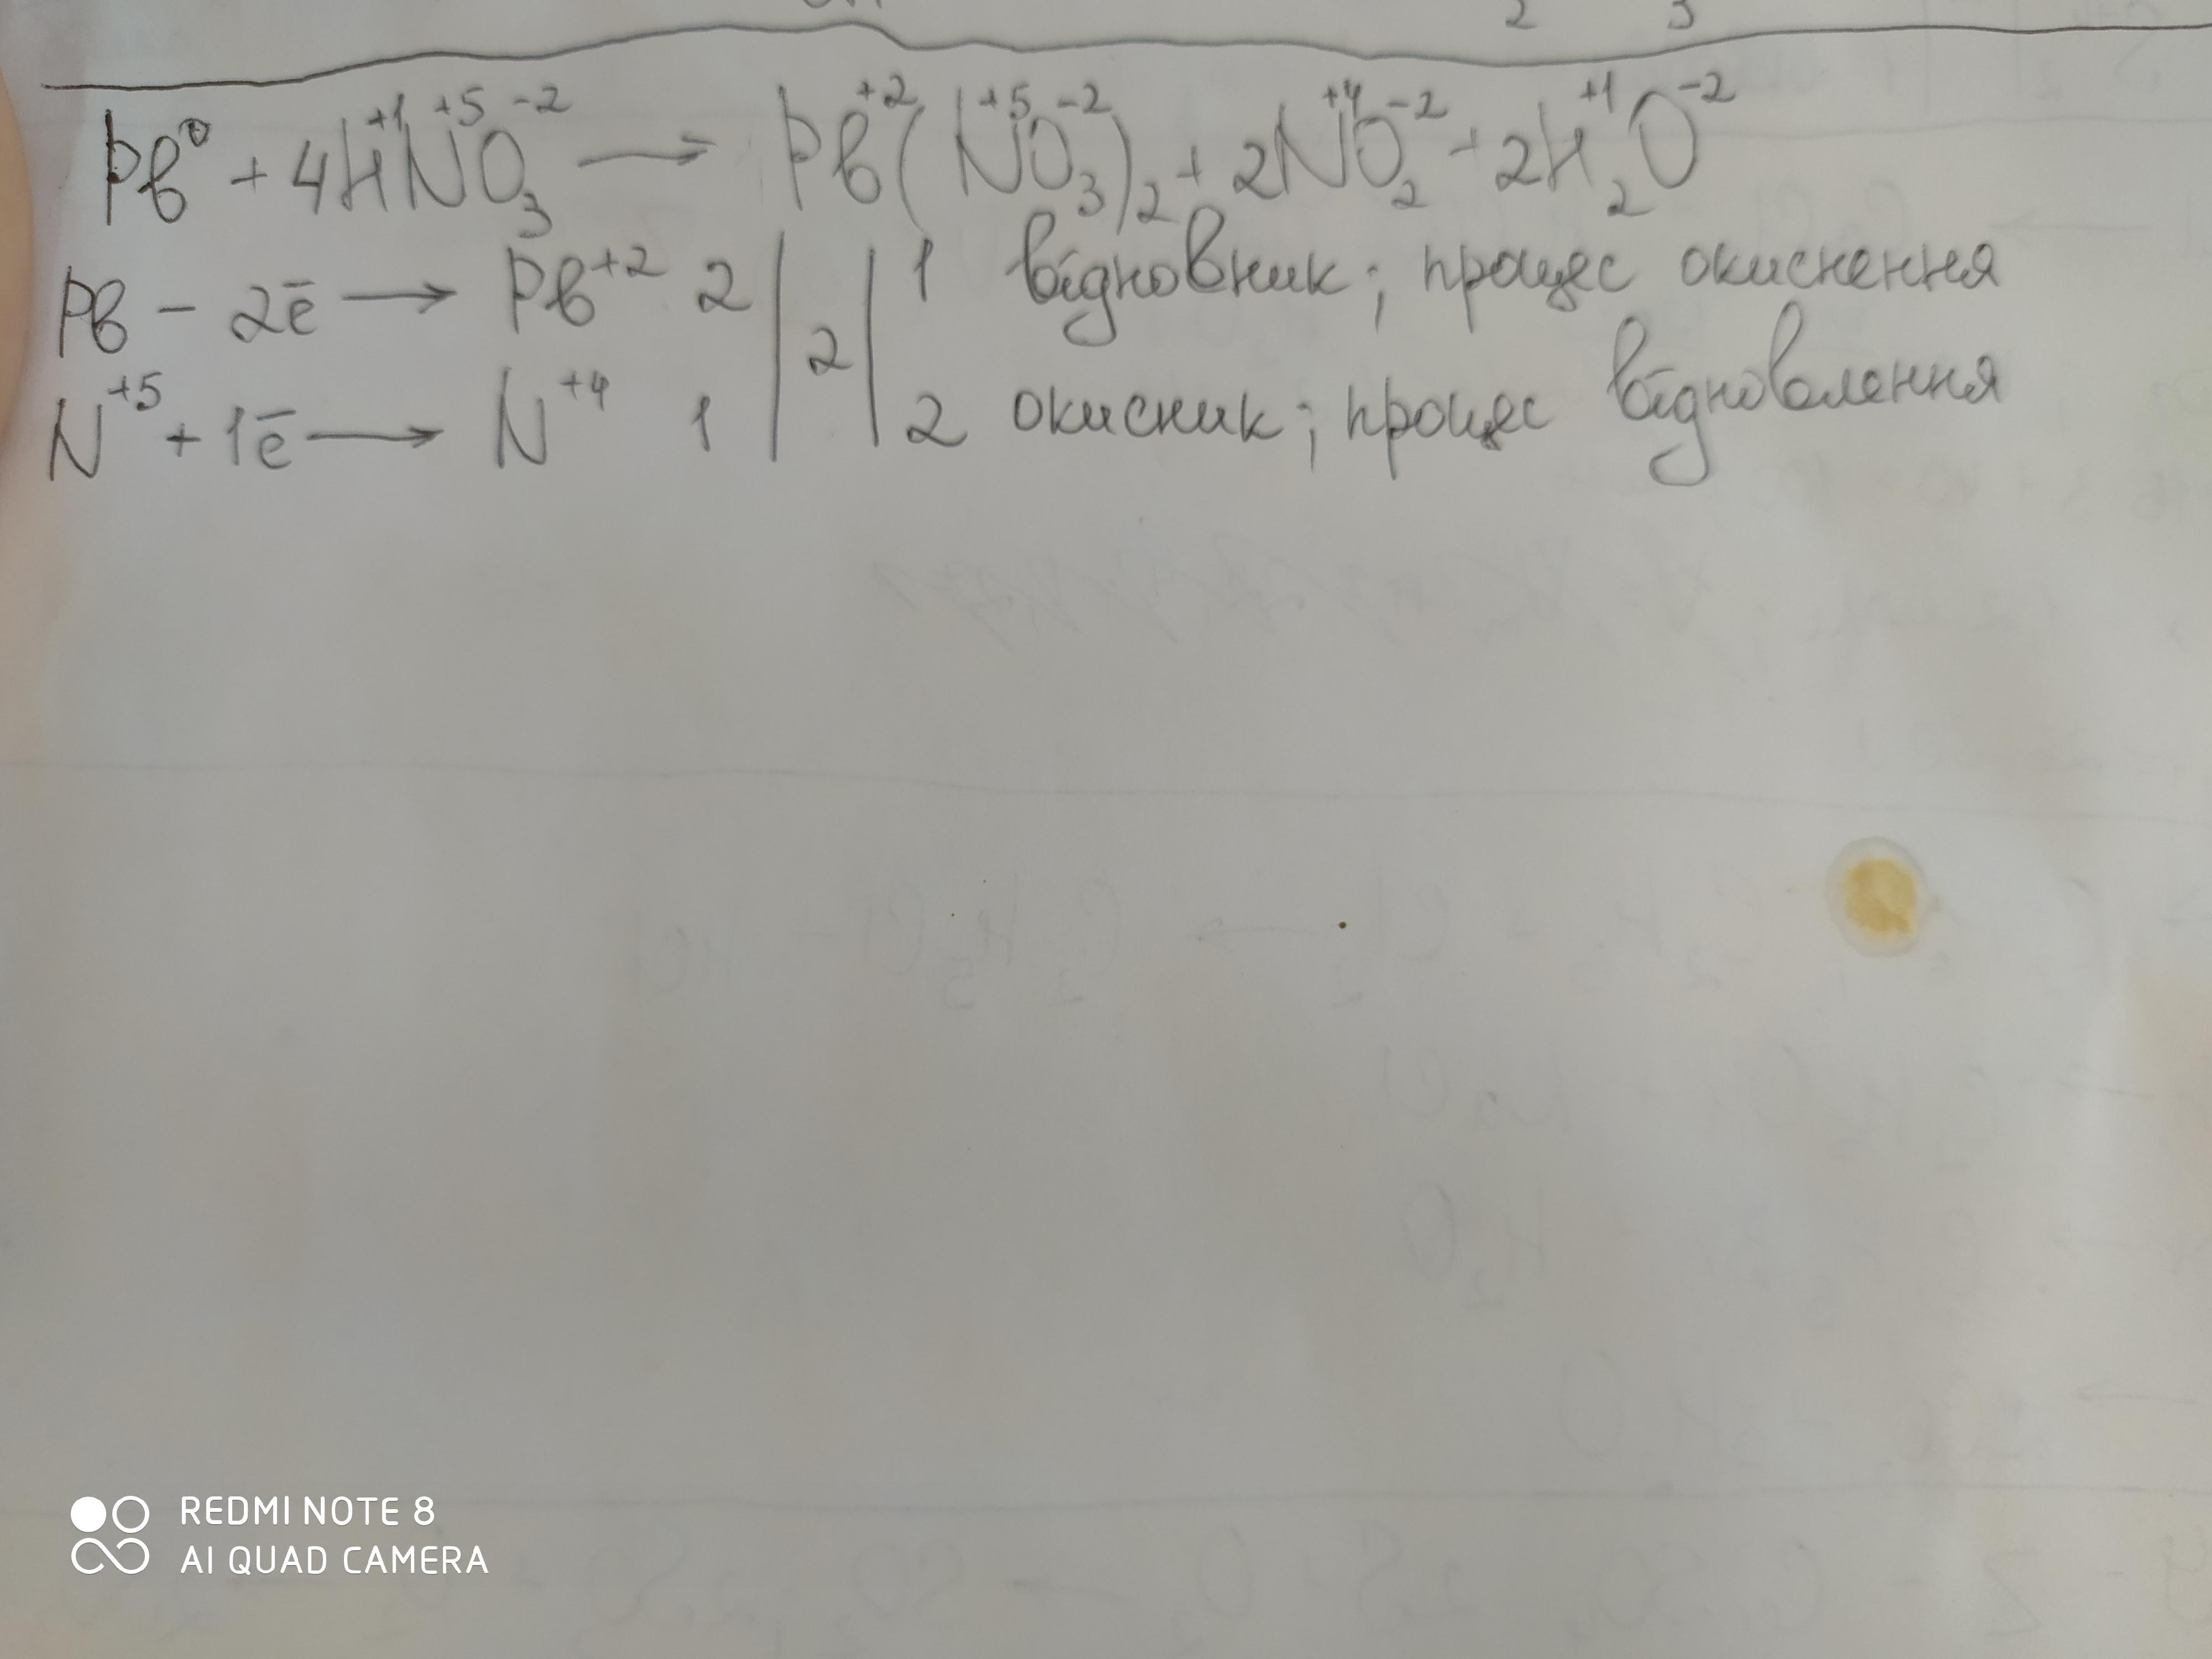 2 3
Pb⁰ + 4H⁺¹N⁺⁵O₃⁻² → Pb⁺²(N⁺⁵O₃⁻²)₂ + 2N⁺⁴O₂⁻² + 2H₂⁺¹O⁻²
Pb − 2ē → Pb⁺² 2 | 2 | 1 відновник; процес окиснення
N⁺⁵ + 1ē → N⁺⁴ 1 | | 2 окисник; процес відновлення
REDMI NOTE 8
AI QUAD CAMERA